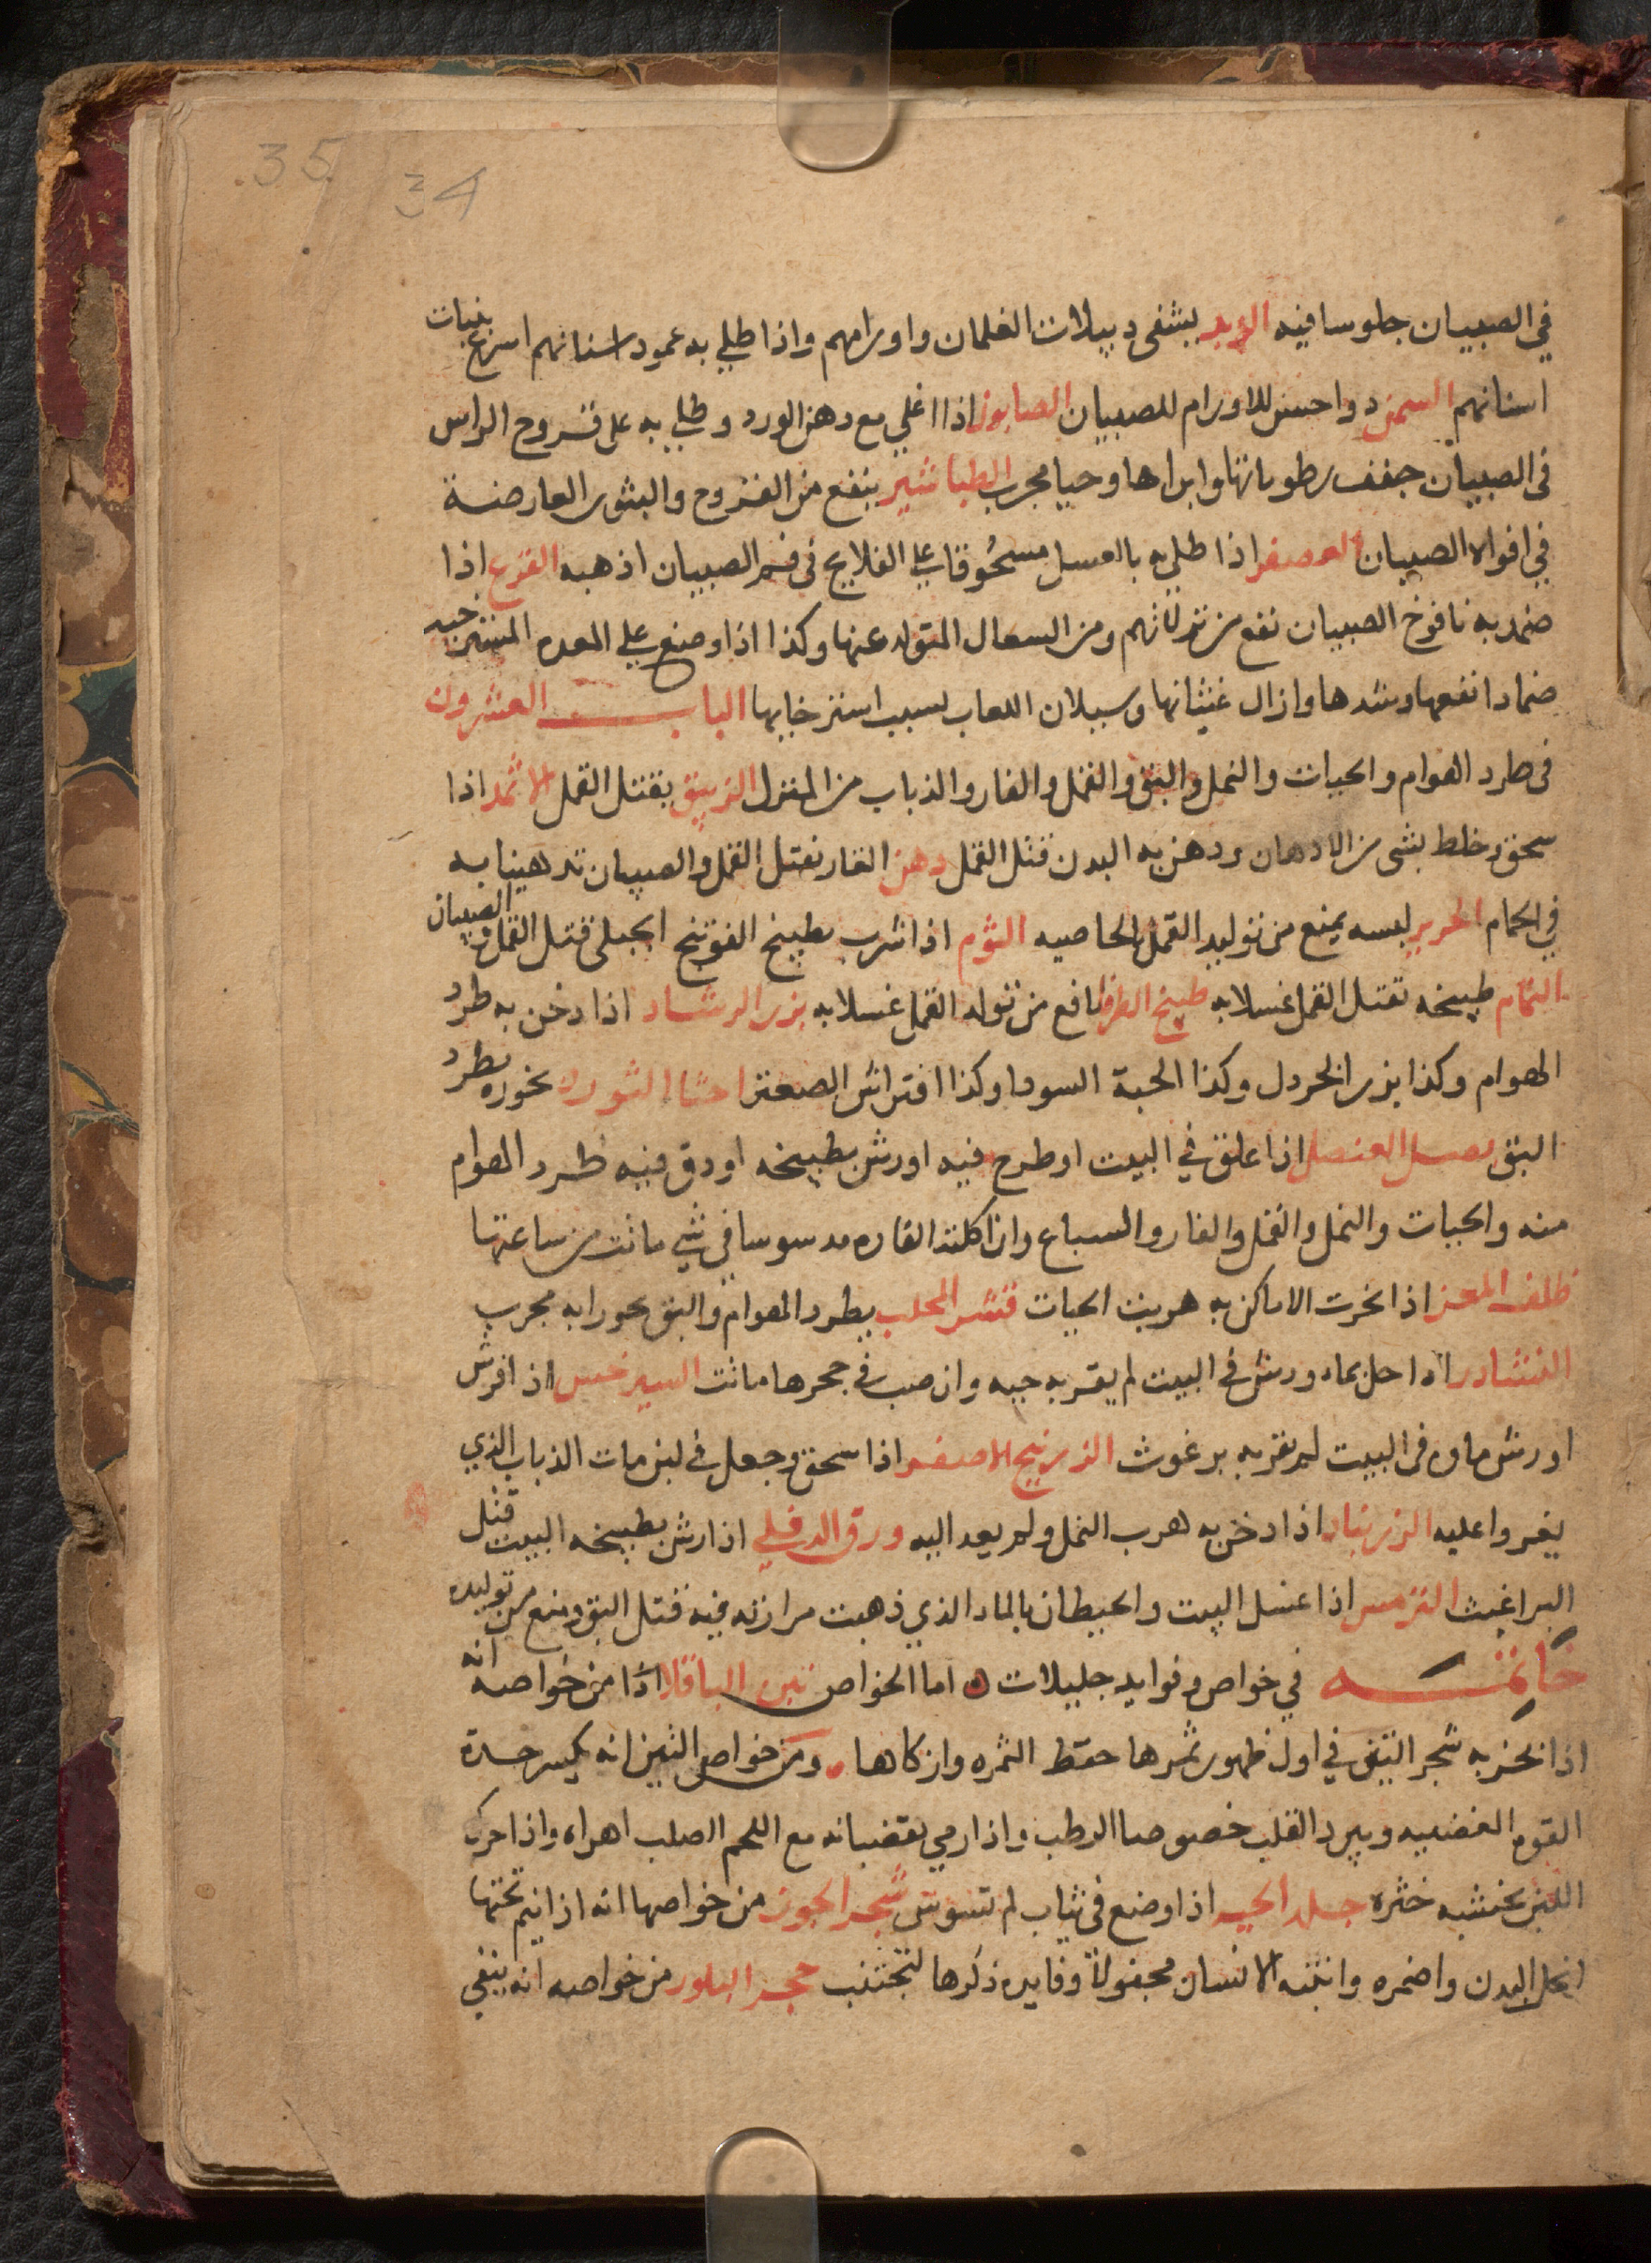 35. 34
في الصبيان جلوسا فيه الزبد يشفى دبيلات الغلمان واورامهم واذا طلي به عمود اسنانهم اسرع نبات
اسنانهم السمن دوا حسن للاورام للصبيان الصابون اذا اغلي مع دهن الورد وطلي به على قروح الراس
فى الصبيان جفف رطوباتها وابراها وحيا مجرب الطباشير ينفع من القروح والبثور العارضة
في افواه الصبيان العصفر اذا طلي به بالعسل مسحُوقا على القلاع فى فم الصبيان اذهبه القرع اذا
ضمد به نافوخ الصبيان نفع من نزلاتهم ومن السعال المتولد عنها وكذا اذا وضع على المعده المسترخيه
ضمادا نفعها وشدها وازال غثيانها وسيلان اللعاب بسبب استرخايها الباب العشرون
فى طرد الهوام والحيات والنمل والبق والقمل والفار والذباب من المنزل الزيبق يقتل القمل الاثمد اذا
سحق وخلط بشى من الادهان ودهن به البدن قتل القمل دهن الغار يقتل القمل والصيبان تدهينا به
في الحمام الحرير لبسه يمنع من توليد القمل بالخاصيه الثوم اذا شرب بطبيخ الفوتنج الجبلى قتل القمل والصيبان
النمام طبيخه يقتل القمل غسلا به طبيخ الطرفا نافع من تولد القمل غسلا به بزر الرشاد اذا دخن به طرد
الهوام وكذا بزر الخردل وكذا الحبة السودا وكذا افتراش الصعتر اخثا الثور بخوره يطرد
البق بصل العنصل اذا علق في البيت او طرح فيه او رش بطبيخه او دق فيه طرد الهوام
منه والحيات والنمل والقمل والفار والسباع وان اكلته الفاره مدسوسا في شي ماتت من ساعتها
ظلف المعز اذا بخرت الاماكن به هربت الحيات قشر المحلب يطرد الهوام والبق بخورا به مجرب
النشادر اذا حل بماء ورش في البيت لم يقربه حيه وان صب في جحرها ماتت السيرخس اذا فرش
او رش ماوه فى البيت لم يقربه برغوث الزرنيخ الاصفر اذا سحق وجعل في لبن مات الذباب الذي
يقع عليه الزرنباد اذا دخن به هرب النمل ولم يعد اليه ورق الدفلي اذا رش بطبيخه البيت قتل
البراغيث الترمس اذا غسل البيت والحيطان بالماء الذي ذهبت مرارته فيه قتل البق ومنع من توليده
خاتمه في خواص وفوايد جليلات اما الخواص تبن الباقلا اذا من خواصه انه
اذا بخر به شجر التين في اول ظهور ثمرها حفظ الثمره وازكاها ومن خواص التين انه يكسر حدة
القوه الغضبيه ويبرد القلب خصوصا الرطب واذا رمي بقضبانه مع اللحم الصلب اهراه واذا حرك
اللبن بخشبه خثره جلد الحيه اذا وضع فى ثياب لم تسوس شجر الجوز من خواصها انه اذا نيم تحتها
انحل البدن واضمره وانتبه الانسان مجفولاً وفايده ذكرها لتجتنب حجر البلور من خواصه انه ينفي